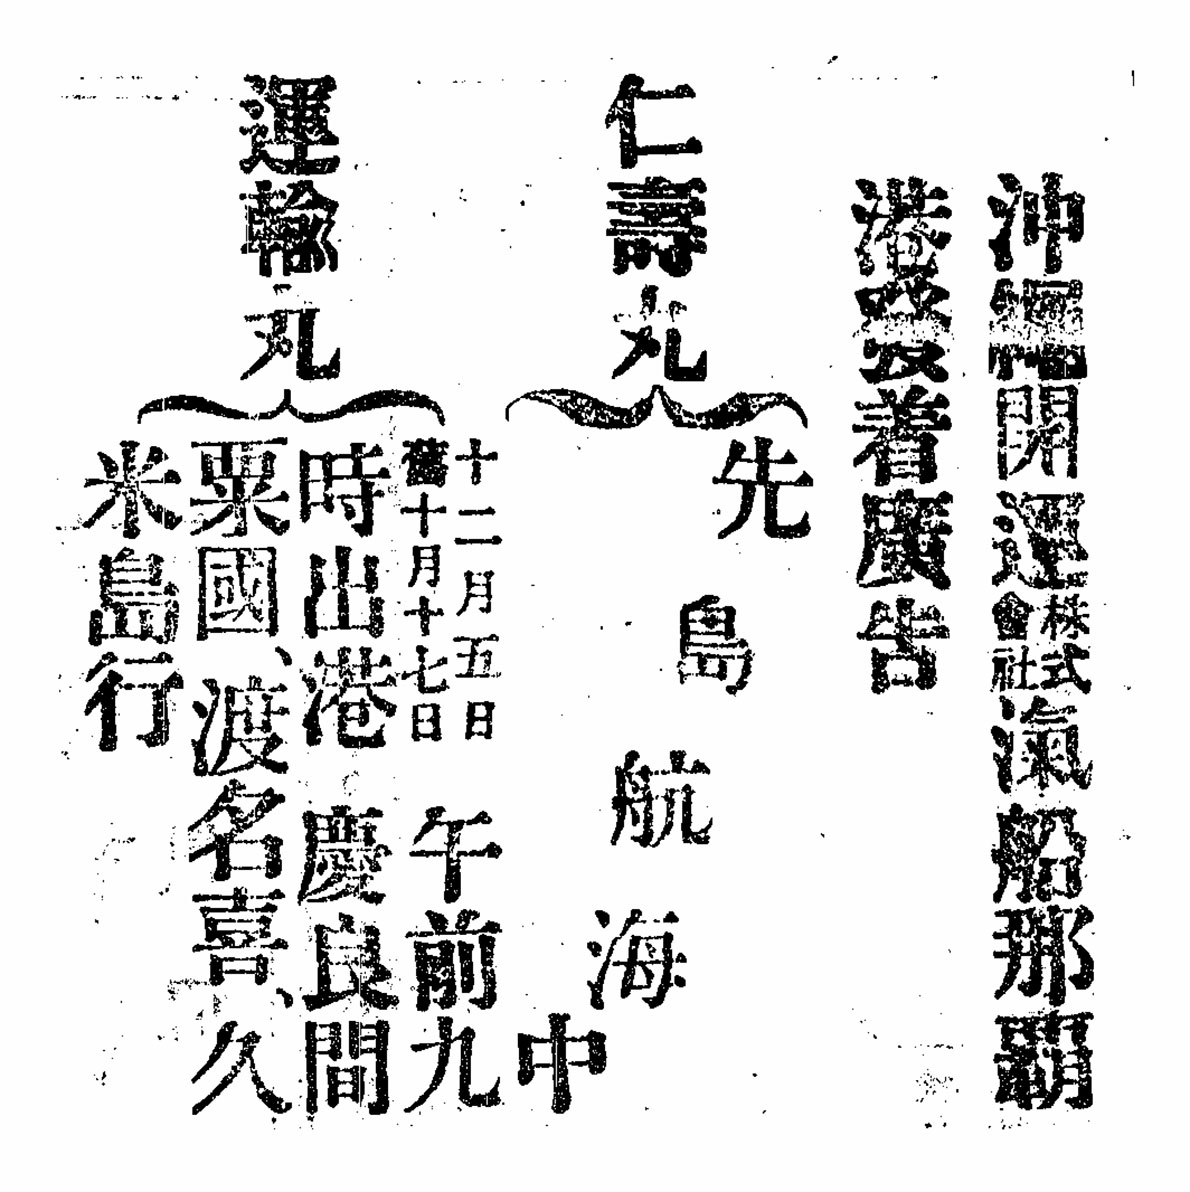 沖縄開運株式會社滊船那覇
港発着廣告
仁壽丸
先島航海中
運輸丸
十二月五日
舊十月十七日
午前九
時出港 慶良間
粟國、渡名喜、久
米島行